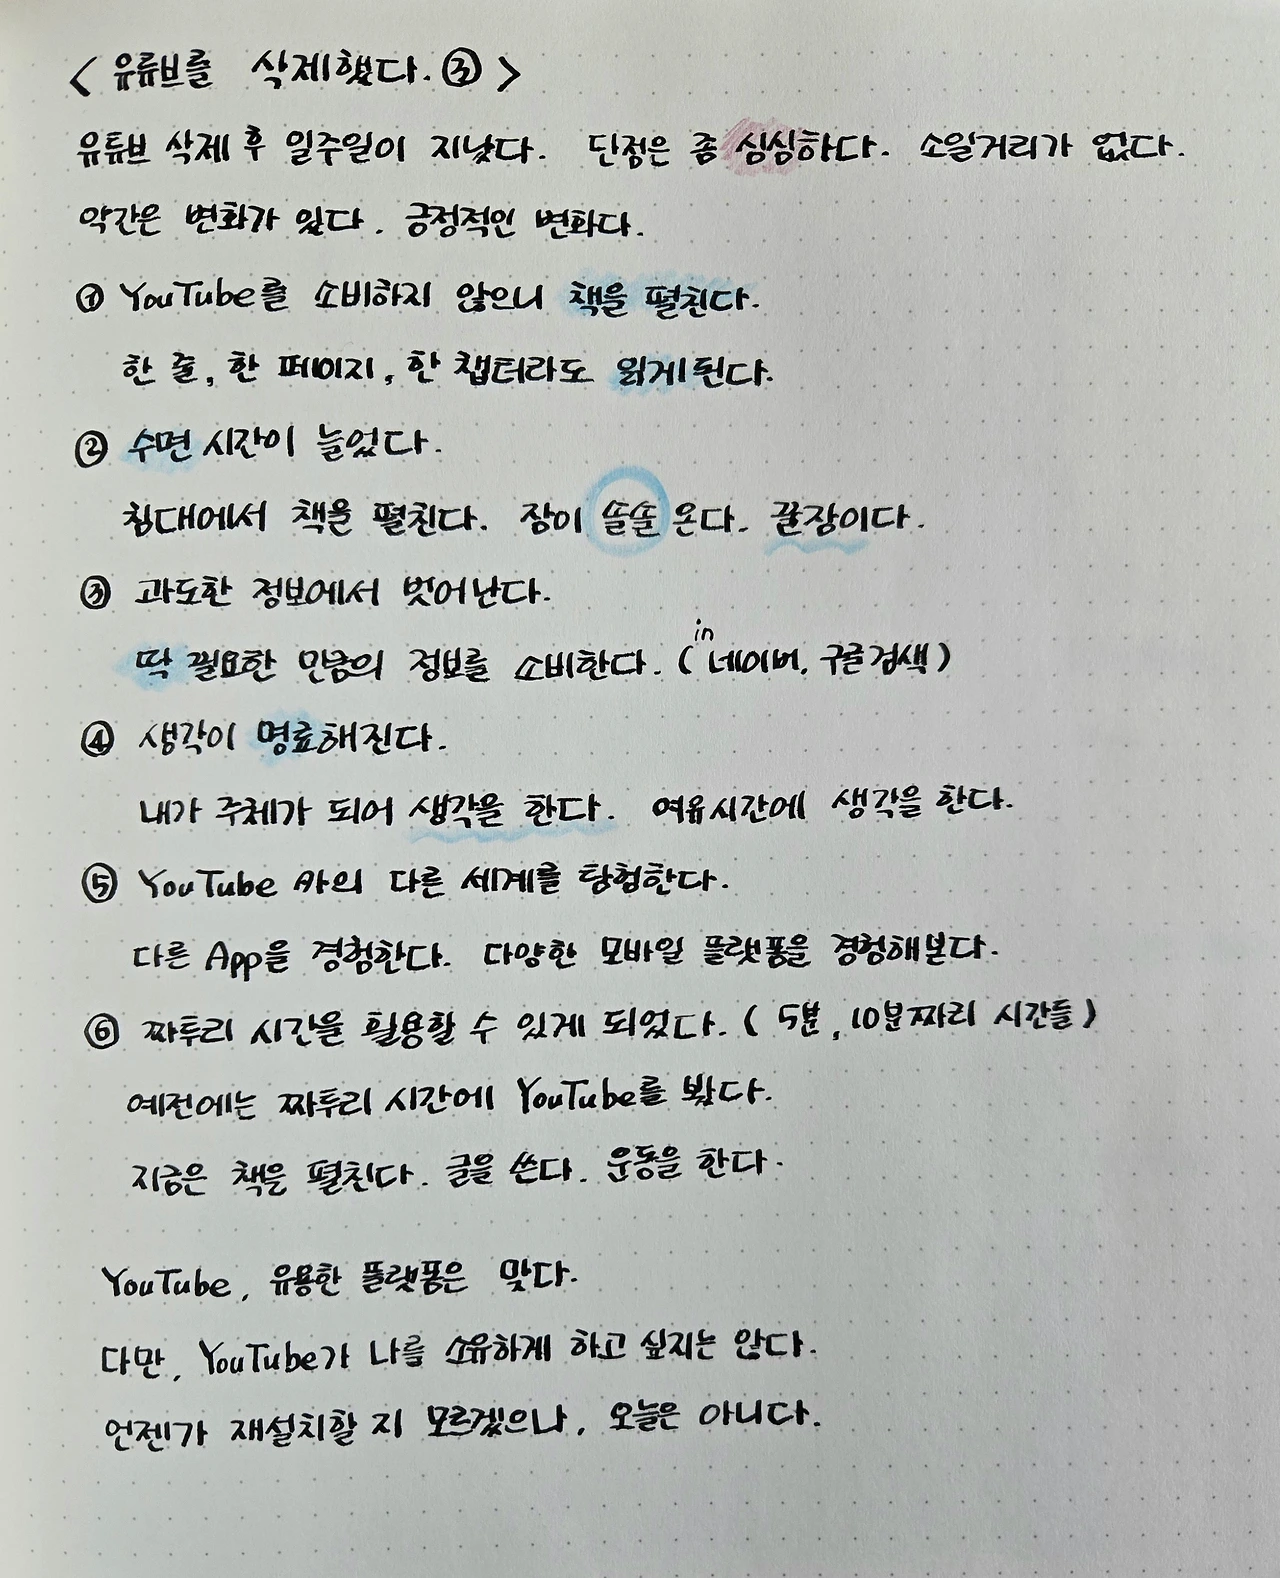 < 유튜브를 삭제했다. ③ >
유튜브 삭제 후 일주일이 지났다. 단점은 좀 심심하다. 소일거리가 없다.
약간은 변화가 있다. 긍정적인 변화다.
① YouTube를 소비하지 않으니 책을 펼친다.
한 줄, 한 페이지, 한 챕터라도 읽게된다.
② 수면 시간이 늘었다.
침대에서 책을 펼친다. 잠이 솔솔 온다. 꿀잠이다.
③ 과도한 정보에서 벗어난다.
딱 필요한 만큼의 정보를 소비한다. (in 네이버, 구글검색)
④ 생각이 명료해진다.
내가 주체가 되어 생각을 한다. 여유시간에 생각을 한다.
⑤ YouTube 外의 다른 세계를 탐험한다.
다른 App을 경험한다. 다양한 모바일 플랫폼을 경험해본다.
⑥ 짜투리 시간을 활용할 수 있게 되었다. ( 5분, 10분짜리 시간들)
예전에는 짜투리 시간에 YouTube를 봤다.
지금은 책을 펼친다. 글을 쓴다. 운동을 한다.
YouTube, 유용한 플랫폼은 맞다.
다만, YouTube가 나를 소유하게 하고 싶지는 않다.
언젠가 재설치할 지 모르겠으나, 오늘은 아니다.